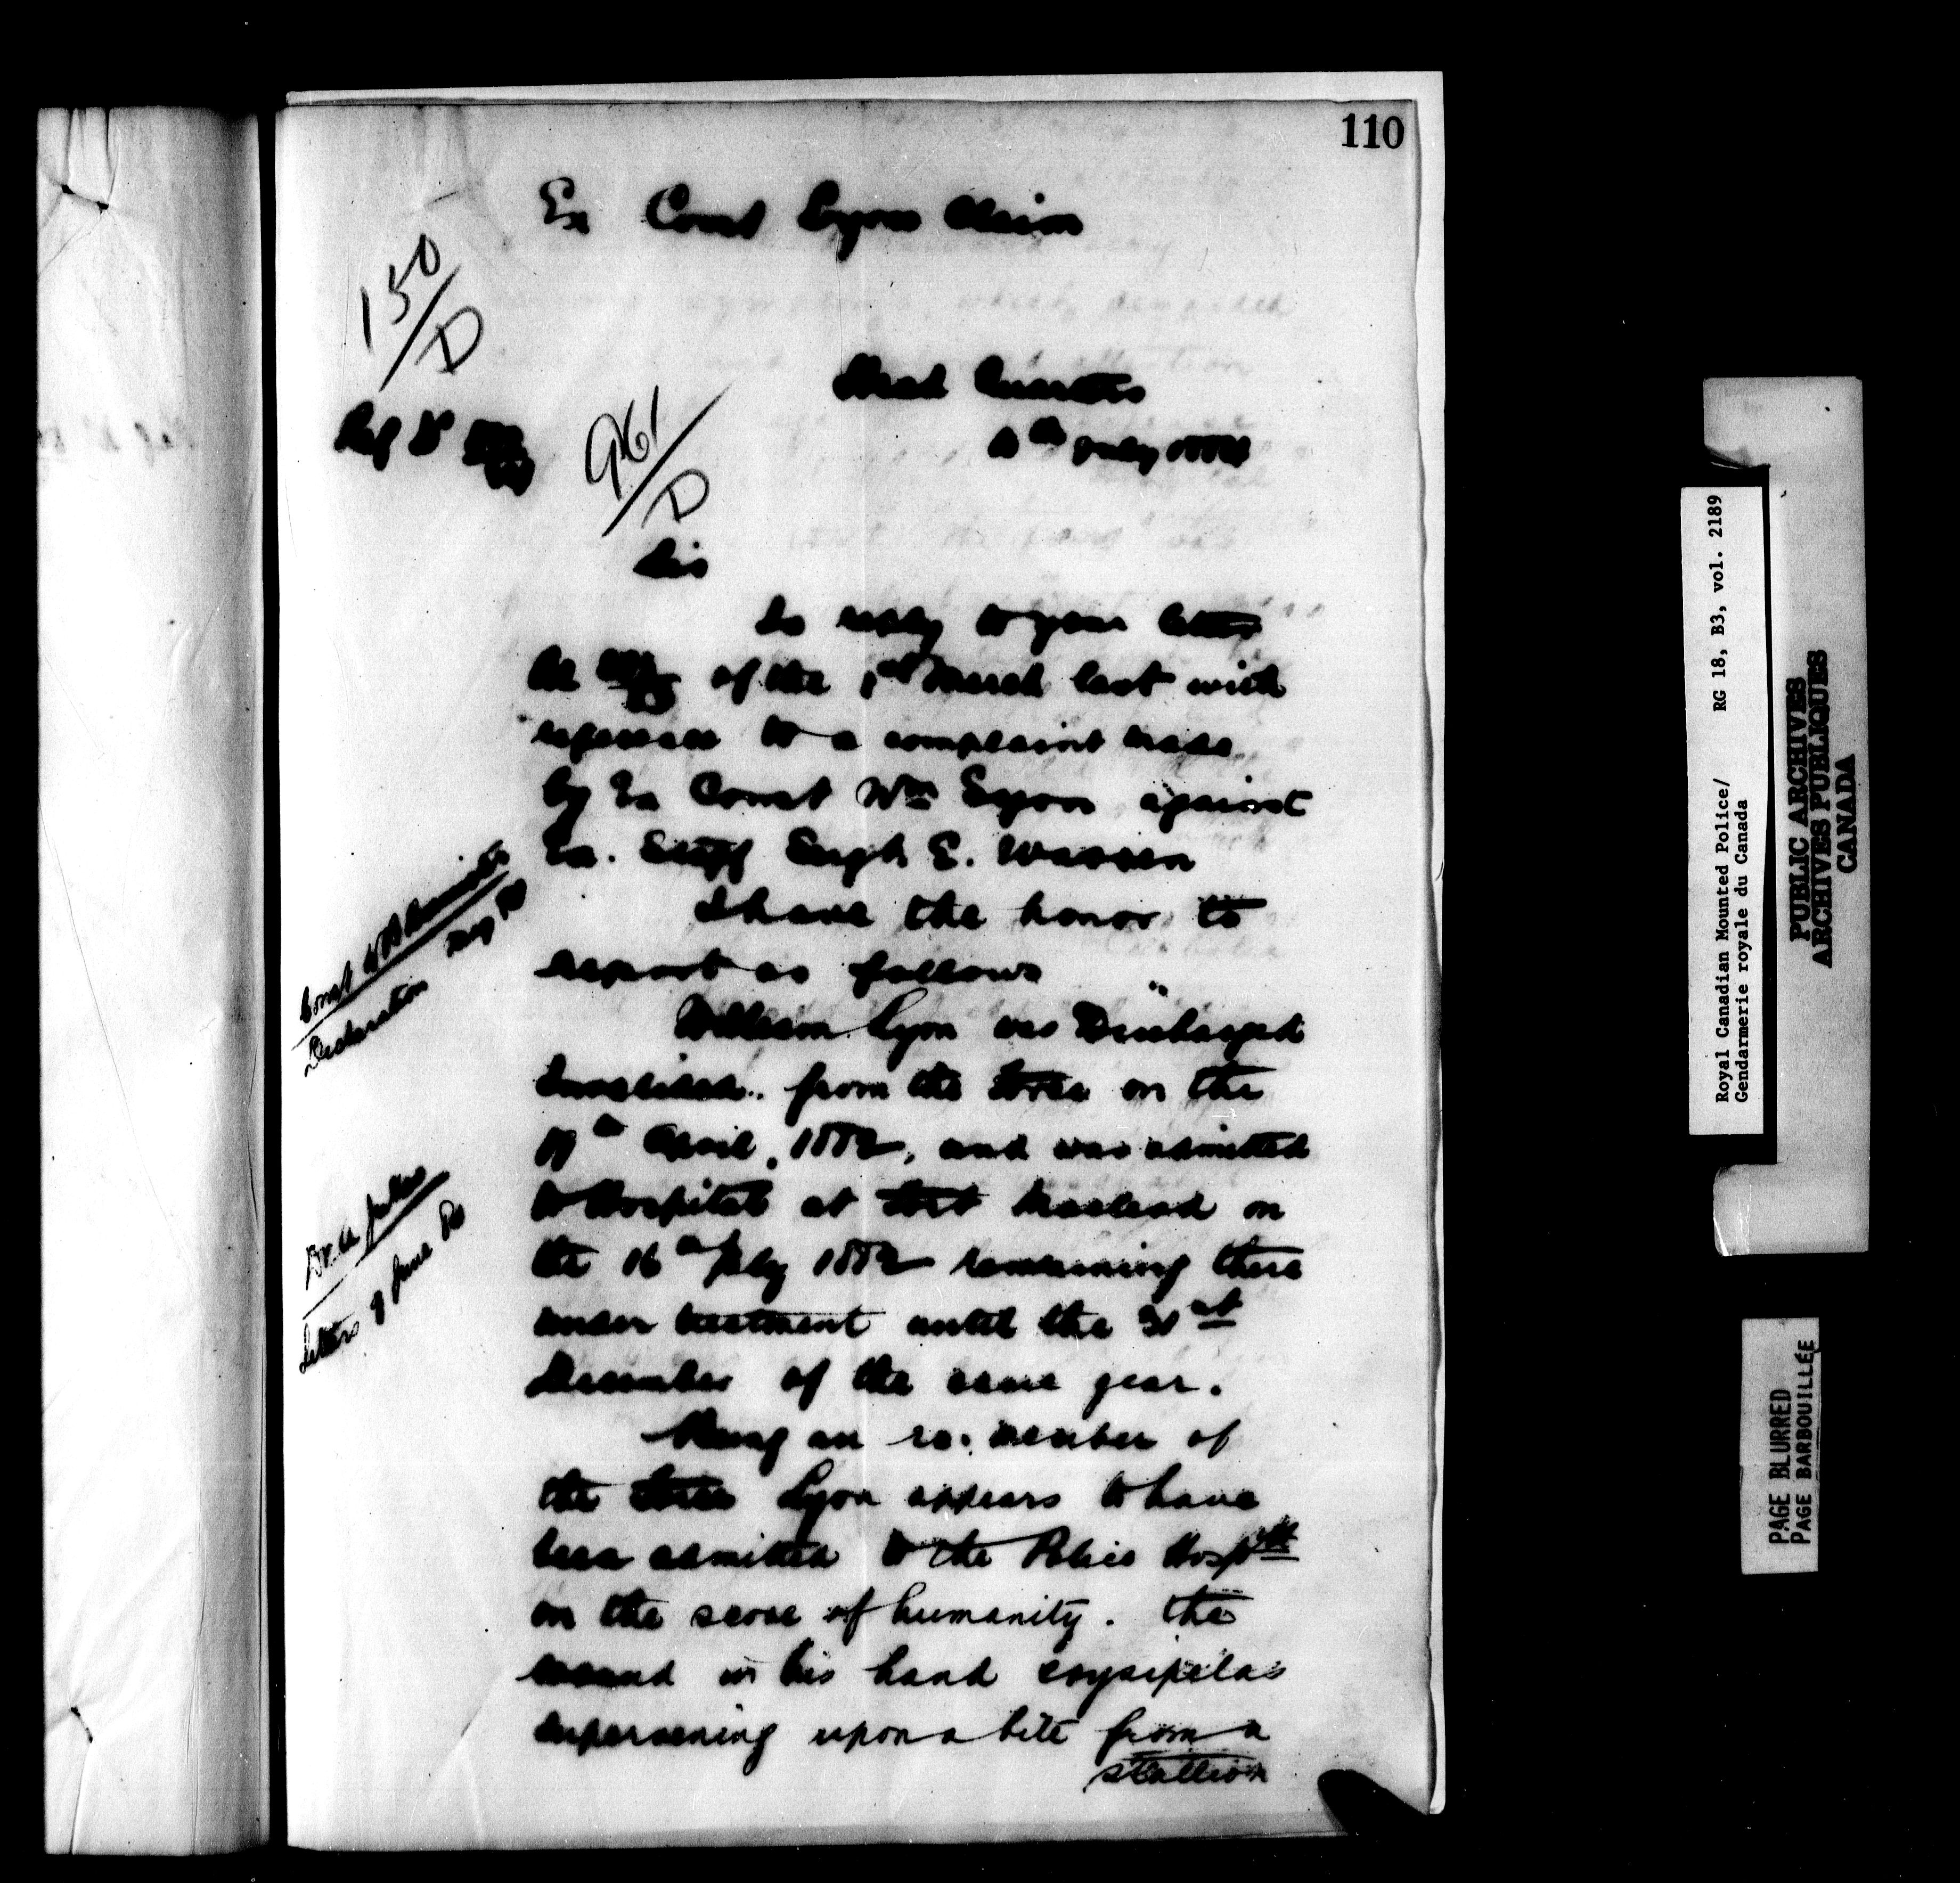 110
Ex Const Lyon Claim
150/D
Head Quarters
July
961/D
Sir
In reply to your letter
of the 1st March last with
reference to a complaint made
by Ex Const Wm Lyon against
Ex. Staff Sergt. E. Warren
I have the honor to
report as follows
William Lyon was "Discharged
Invalided. from the Force on the
April. 1882, and was admitted
to Hospital at Fort Macleod on
the 16th July 1882 remaining there
under treatment until the 31st
December of the same year.
Being an ex. member of
the Force Lyon appears to have
been admitted to the Police Hospitl
on the score of humanity. the
wound in his hand erysipelas
supervening upon a bite from a
stallion
Const
Declaration
Letters 9 June
Royal Canadian Mounted Police/ RG 18, B3, vol. 2189
Gendarmerie royale du Canada
PUBLIC ARCHIVES
ARCHIVES PUBLIQUES
CANADA
PAGE BLURRED
PAGE BARBOUILLÉE